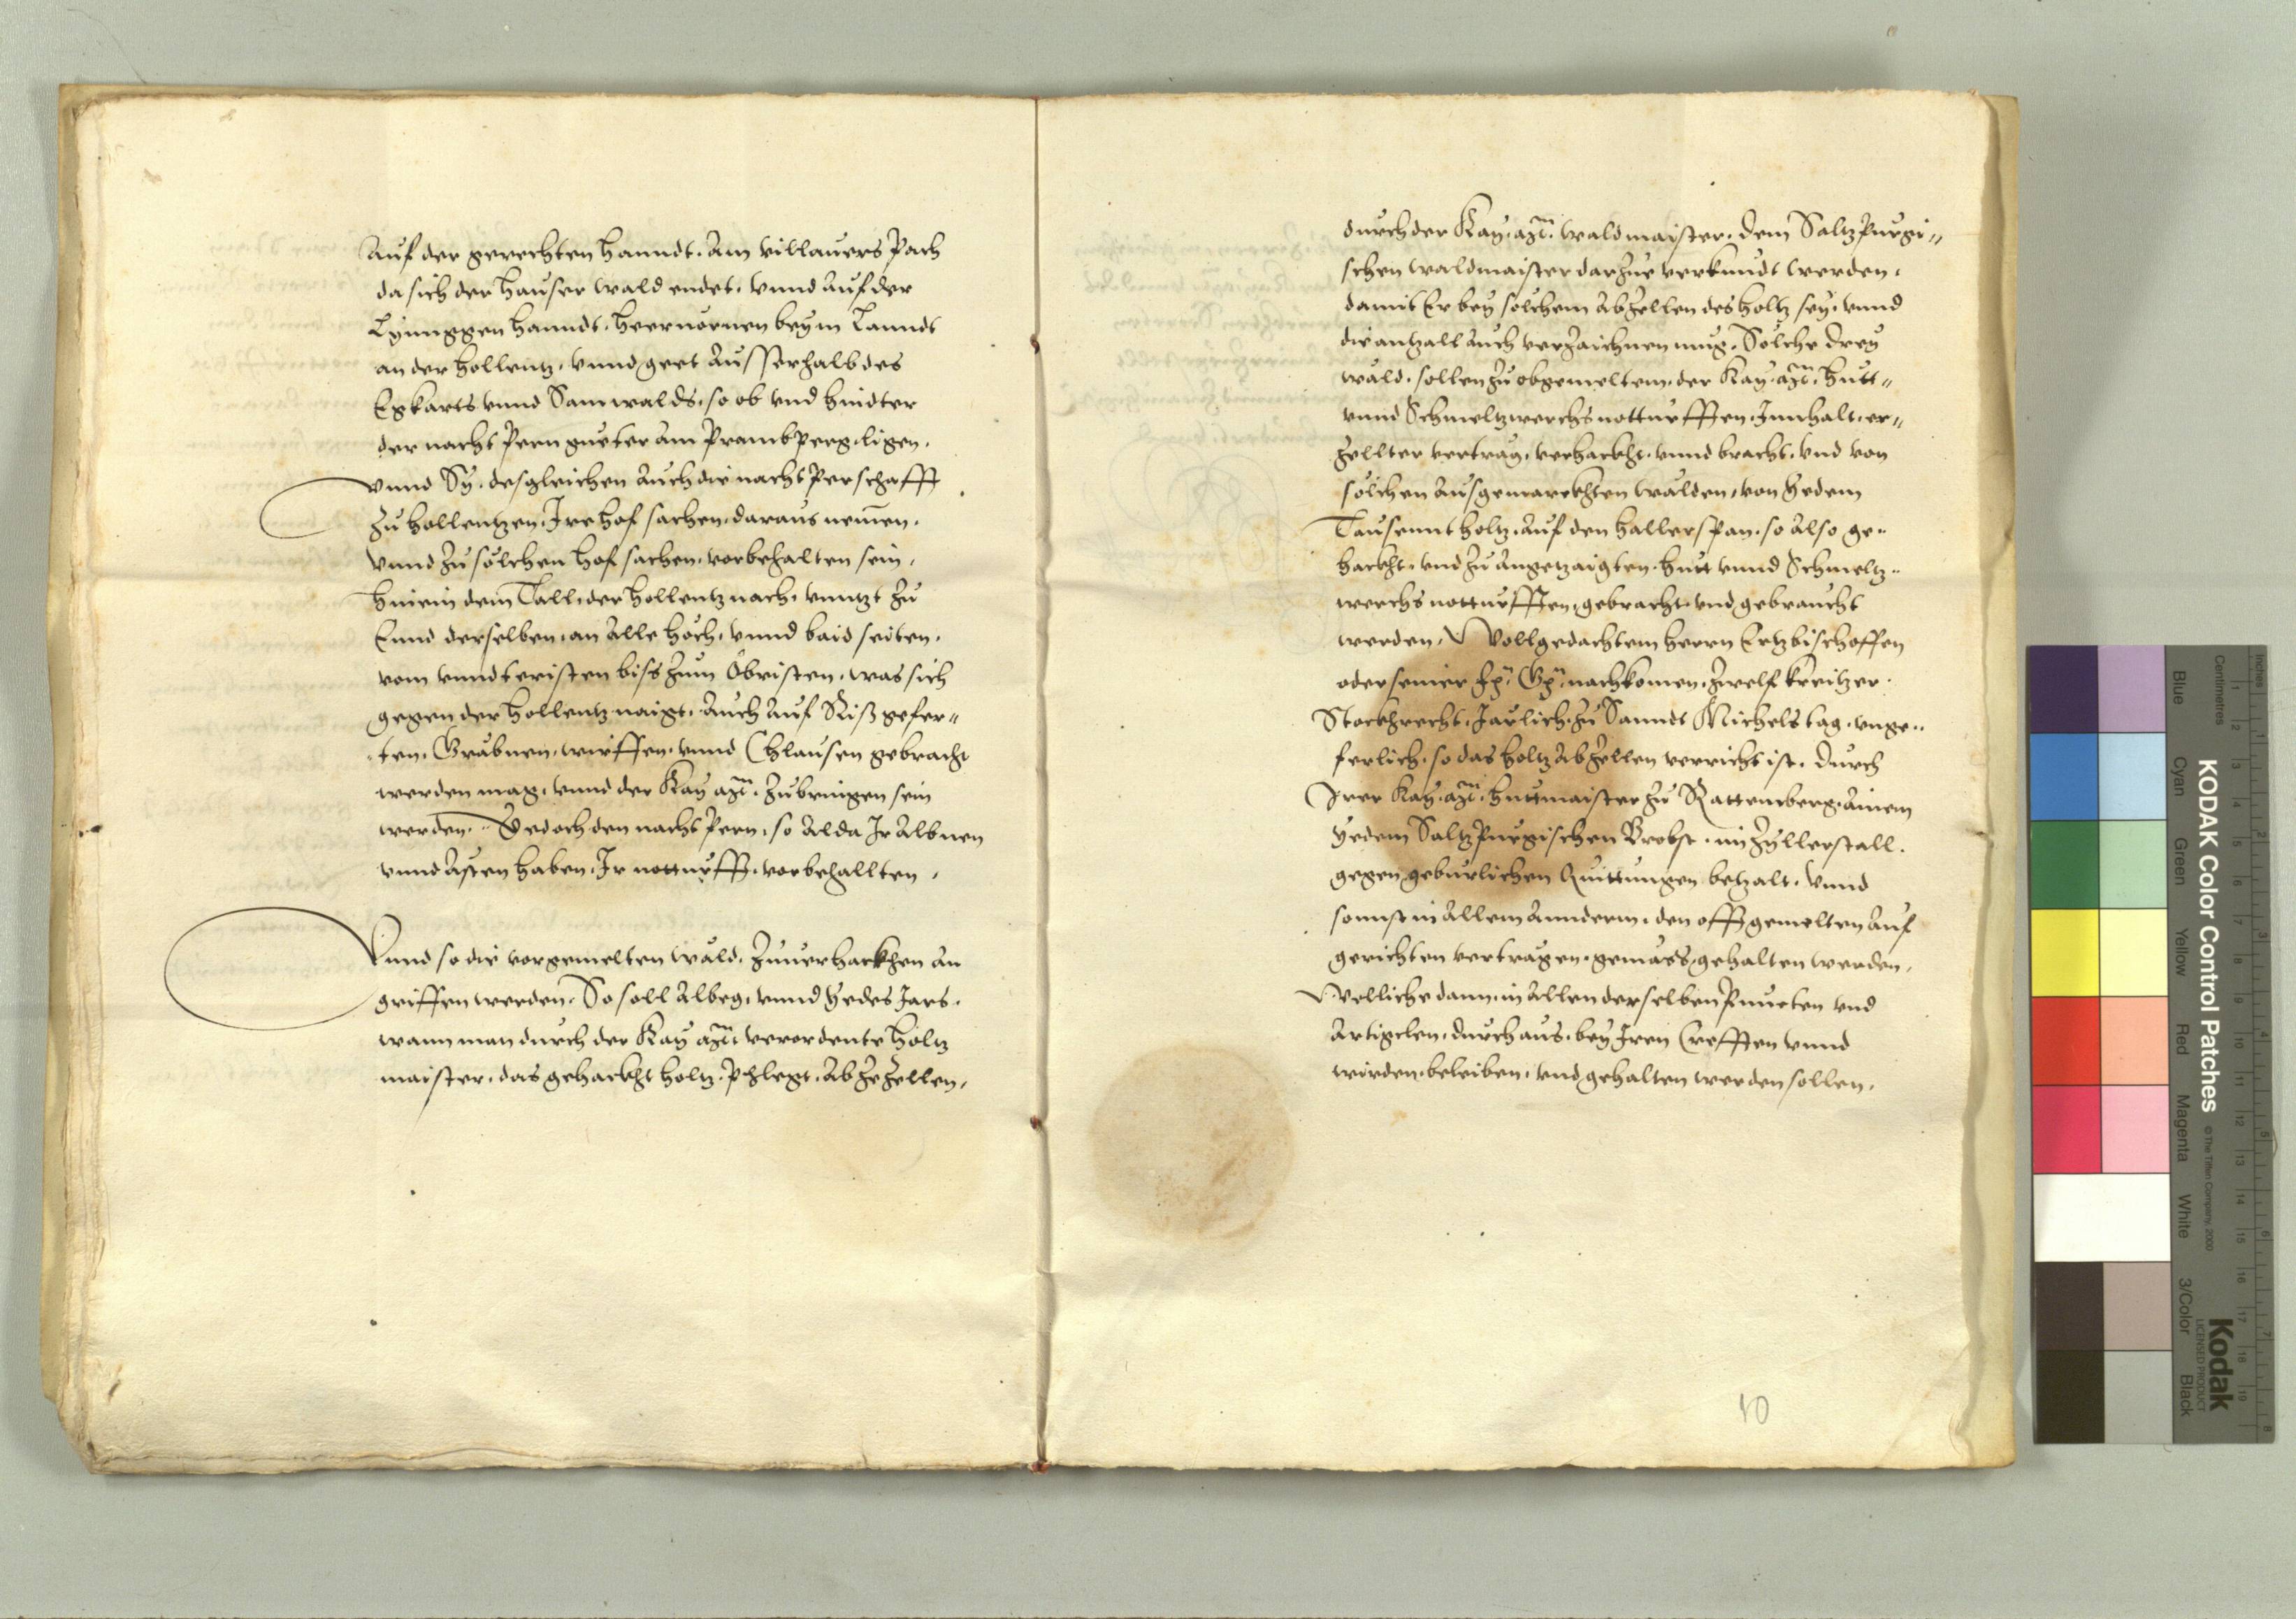 Auf der gerechten Hanndt. Am villauers Pach
da sich der Hauser wald endet. vnnd Auf der
Lynnggen Hanndt. Heeruornen beym Lanndt
an der Hollentz. vnnd geet Ausserhalb des
Egkarts vnnd Sam walds. so ob vnd hindter
der nachtPern gueter Am Prambperg ligen.
vnnd Sy. desgleichen Auch die nachtPerschafft
zu Hollentzen. Ire Hof sachen. daraus nemen.
vnnd zu solchen Hof sachen. vorbehalten sein.
Hinein dem Tall. der Hollentz nach. vnntzt zu
Ennd derselben. an Alle Höch. vnnd baid seiten.
vom vnndteristen biss zum Öbristen. was sich
gegen der Hollentz naigt. Auch Auf Riß gefer„
ten. Gräbnen. würffen. vnnd Chlausen gebracht
werden mag. vnnd der Kay. Mt. zubringen sein
werden. Yedoch den nachtPern. so Alda Ir Albnen
vnnd Asten haben. Ir notturfft. vorbehallten.
Vnnd so die vorgemelten wäld. zuuerhackhen an
griffen werden. So soll Albeg. vnnd Yedes Jars.
wann man durch der Kay. Mt. verordente holtz
maister. das gehackht holtz. phlegt. Abzezellen.
durch der Kay. Mt. waldmaister. dem SaltzPurgi„
schen waldmaister darzue verkundt werden.
damit Er bey solchem Abzellen des holtz sey. vnnd
die antzall Auch verzaichnen mug. Solche drey
wäld. sollen zu obgemeltem. der Kay. Mt. Hütt„
vnnd Schmeltzwerchs notturfften. Innhalt. er„
zellter verträg. verhackht. vnnd bracht. vnd von
solchen Ausgemarckhten wälden. von Yedem
Tausennt holtz. Auf den Haller span. so Also ge„
hackht. vnd zu Angetzaigten. Hütt vnnd Schmeltz„
werchs notturfften. gebracht. vnd gebraucht
werden. Wollgedachtem herrn Ertzbischoffen
oder seiner Gn. nachkomen. zwelf kreitzer.
Stockhrecht. Järlich. zu Sanndt Michels tag. vnge„
ferlich. so das holtz Abzellen verricht ist. durch
Irer Kay. Mt. Hüttmaister zu Rattemberg. Ainem
Yedem SaltzPurgischen Brobst. im Zyllerstall.
gegen gebürlichen Quittungen betzalt. Vnnd
sonnst in Allem Annderm. den offtgemelten Auf
gerichten verträgen. gemäess gehalten werden.
Welliche dann. in Allen derselben Puncten vnd
Artigclen. durchaus. bey Iren Crefften vnnd
wirden. beleiben. vnd gehalten werden sollen.
10
KODAK Color Control Patches
© The Tiffen Company, 2000
Kodak
LICENSED PRODUCT
Blue
Cyan
Green
Yellow
Red
Magenta
White
3/Color
Black
Centimetres
Inches